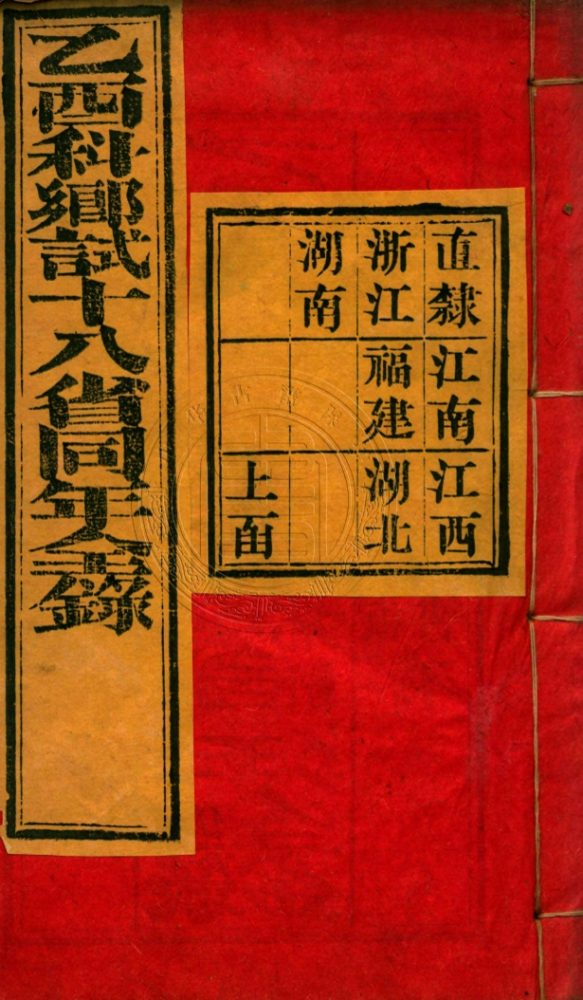 乙酉科鄉試十八省同年全錄
直隸 江南 江西
浙江 福建 湖北
湖南
上函